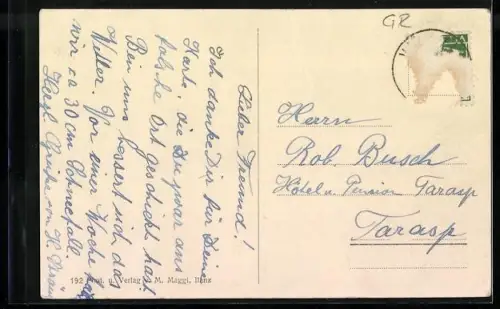 GR
Lieber Freund!
Ich danke Dir für Deine
Karte, die Du zwar ans
falsche Ort geschickt hast.
Bei uns bessert sich das
Wetter. Vor einer Woche
wir ca 30 cm Schneefall
Herzl. Grüsse von H.
Herrn
Rob. Busch
Hôtel u. Pension Tarasp
Tarasp
192 u. Verlag M. Maggi, Ilanz